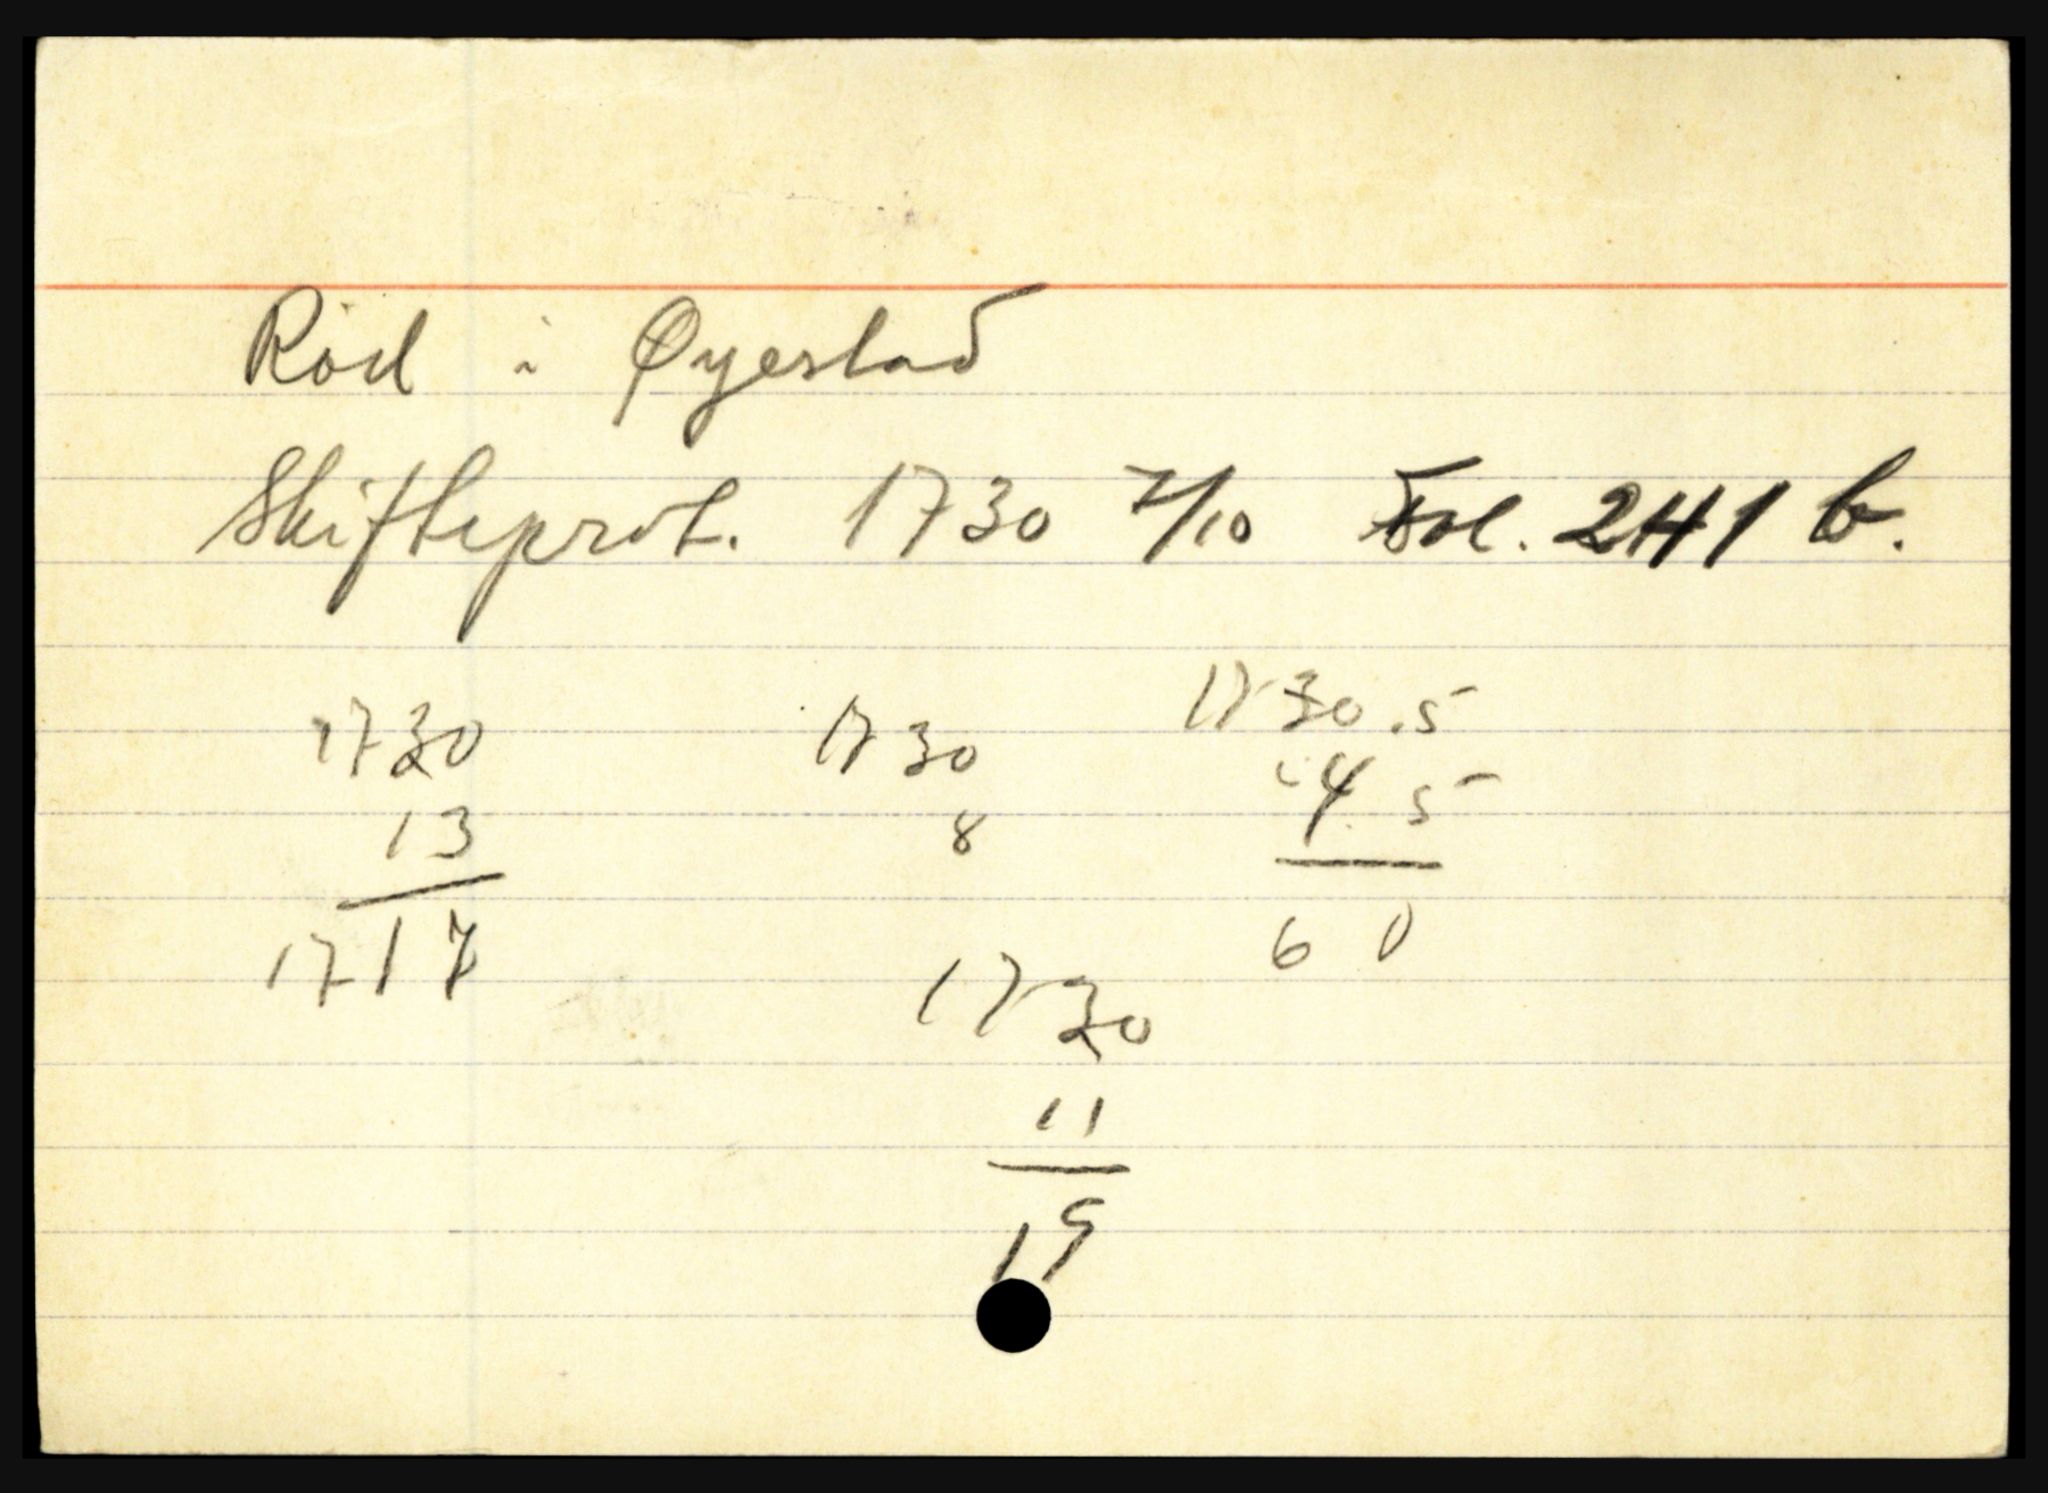 Röd i Øyestad
Skifteprot. 1730 7/10 Fol. 241 b.
1730 1730 1730.5
13 8 45
1717 60
1730
11
19